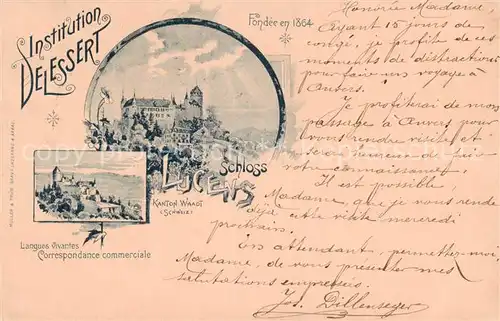 Institution
DELESSERT
Fondée en 1864
Schloss
LUCENS
KANTON WAADT
(SCHWEIZ)
Langues Vivantes
Correspondance commerciale
Honorée Madame,
Ayant 15 jours de
congé, je profite de ces
moments de distractions
pour faire un voyage à
Anvers.
Je profiterai de mon
passage à Anvers pour
vous rendre visite et
serai heureux de faire
votre connaissance.
Il est possible
Madame, que je vous rende
déjà cette visite mercredi
prochain.
En attendant, permettez-moi
Madame, de vous présenter mes
salutations empressées.
Jos. Dillenseger